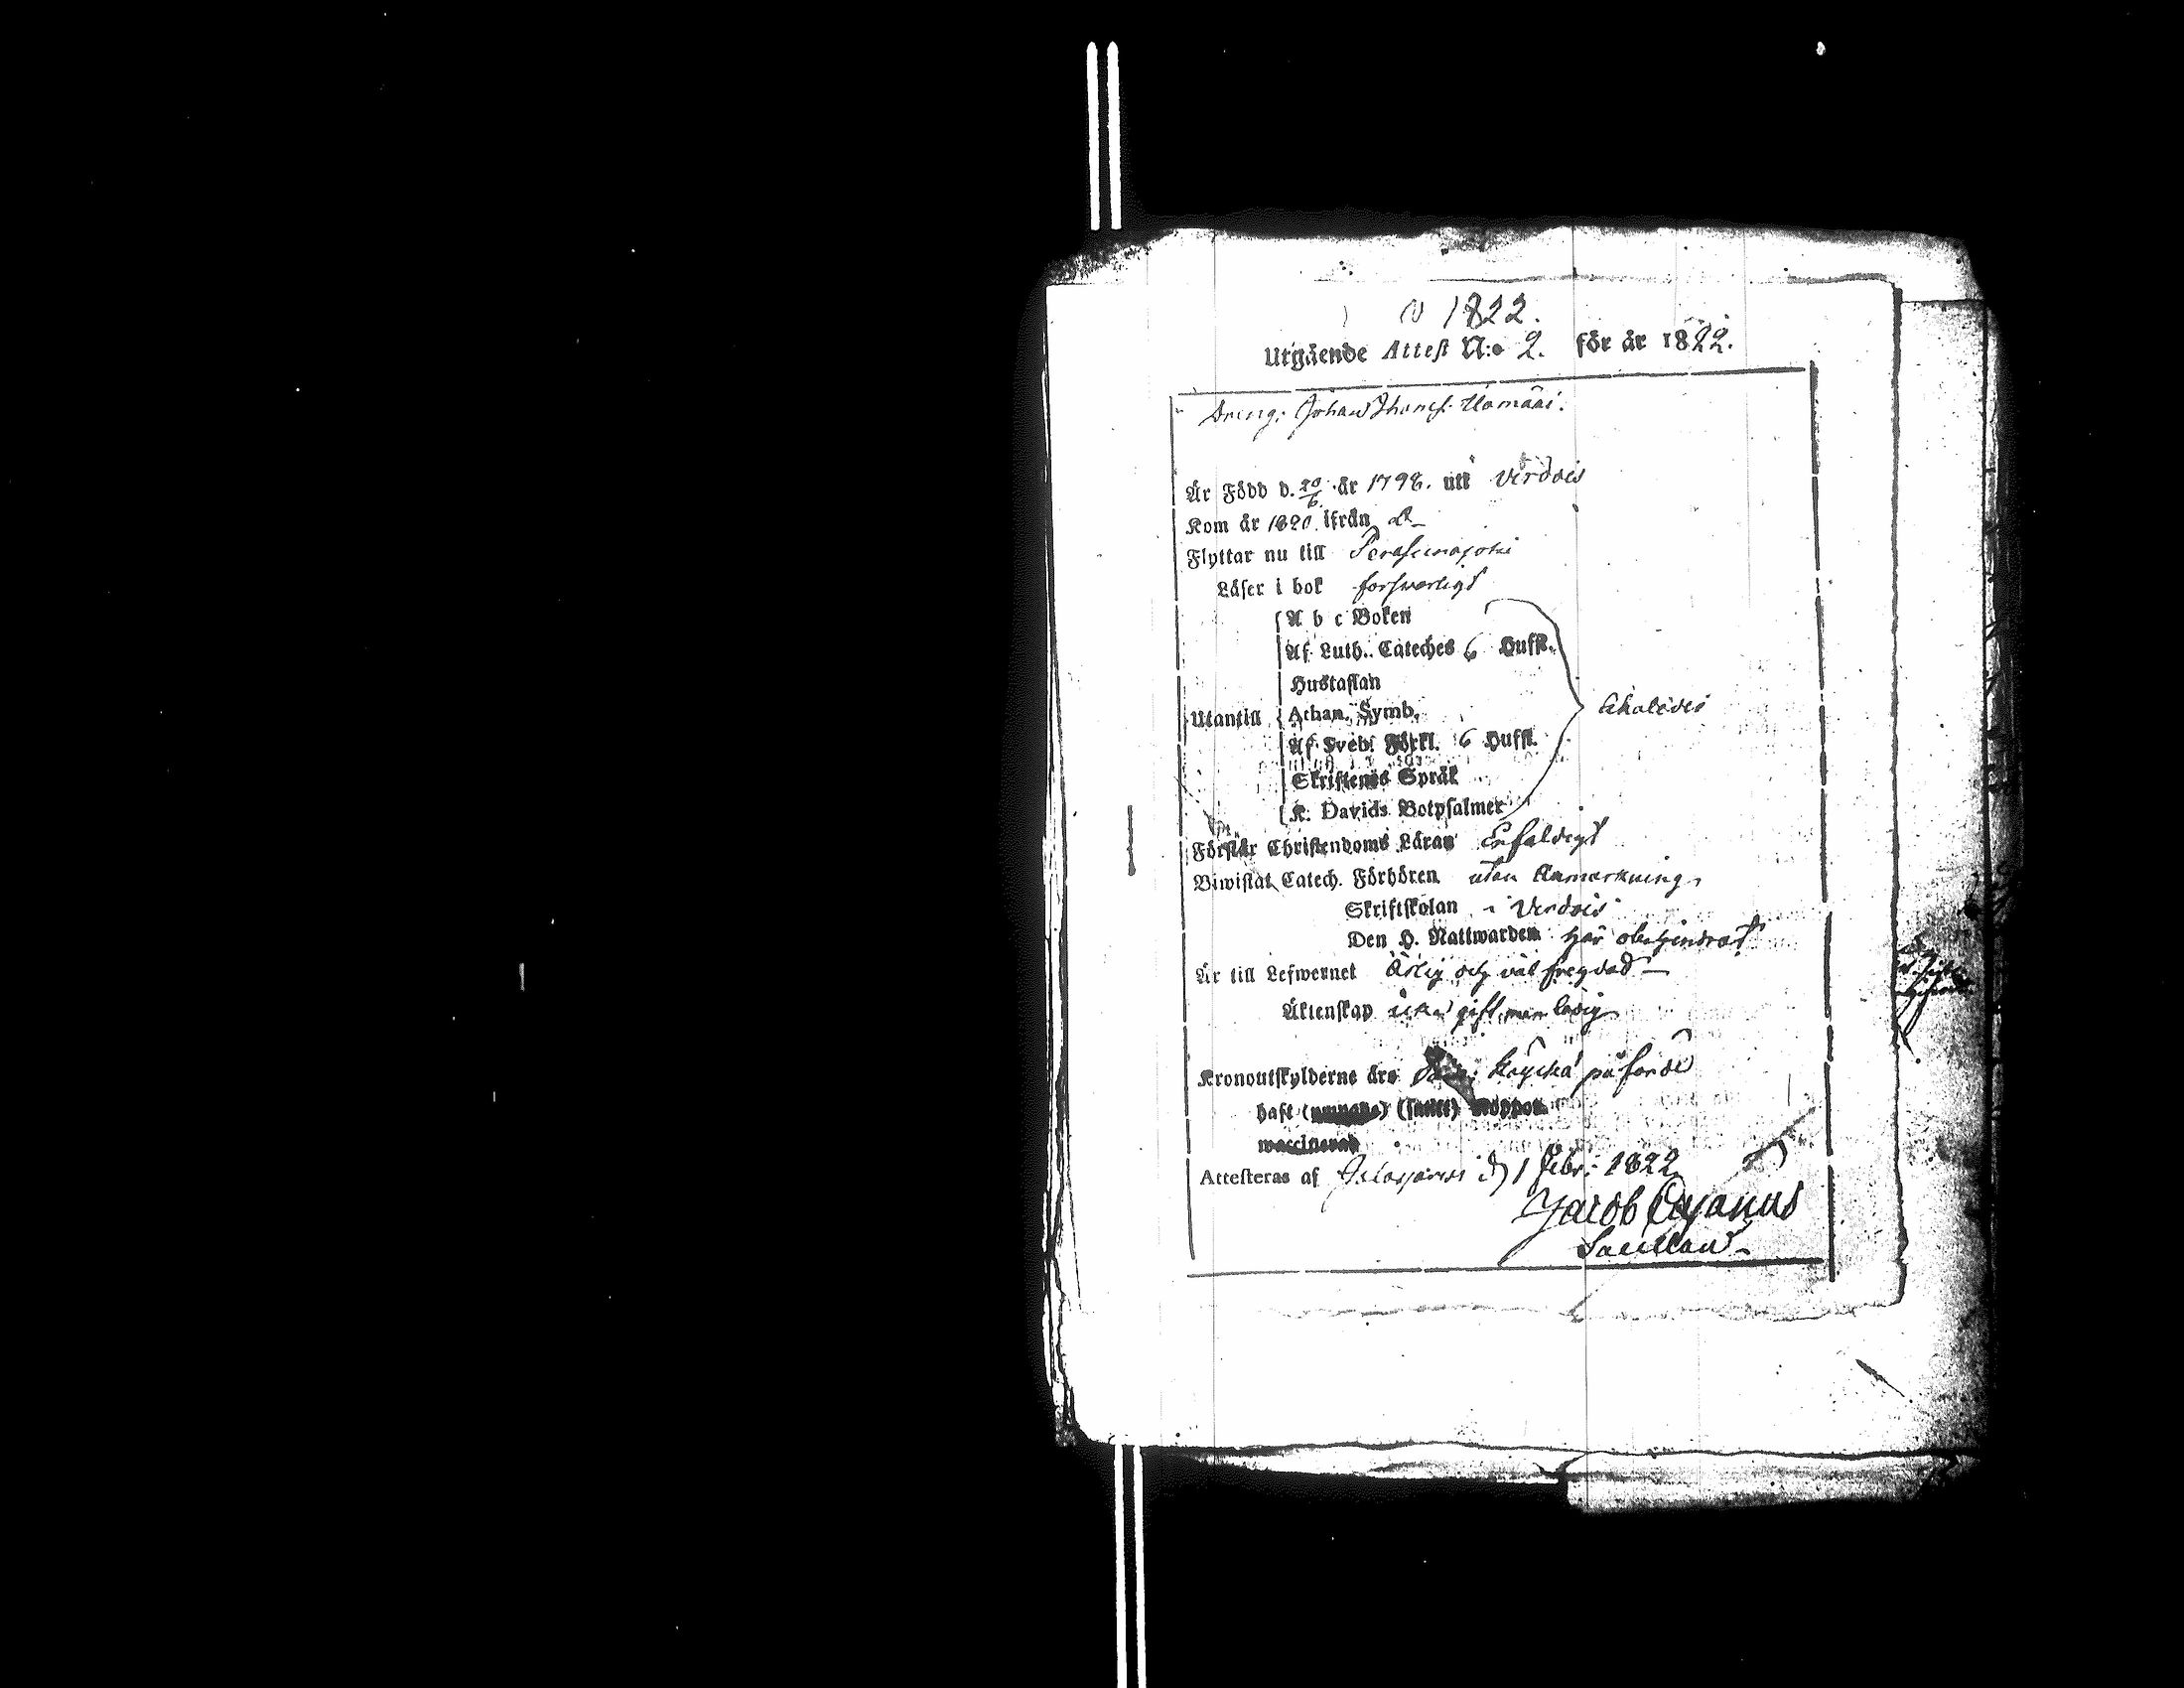 1822.
Utgående Attest N:o 2. för år 1822.
Dreng: Johan Thomss:
Är Född d. 20/6 år 1798. uti Virdois
Kom år 1820 ifrån
Flyttar nu till Peraseinajoki
Läser i bok forswarligt
A b c Boken
Af Luth. Cateches 6 Hufst.
Hustaflan
Utantill Athan. Symb.
Af Sveb. Förkl. 6 Hufst.
Skriftenes Språk
K. Davids Botpsalmer
Förstår Christendoms Läran Enfaldigt
Biwistat Catech. Förhören utan Anmerkning
Skriftskolan i Virdois
Den H. Nattwarden här obehindrat
Är till Lefwernet Ärlig och väl fregdad
Äktenskap icke gift, men ledig
Kronoutskylderne äro påförde
haft (umgåtts) (smitt) Koppor
waccinerad
Attesteras af d. 1 Febr: 1822
Jacob Cajanus